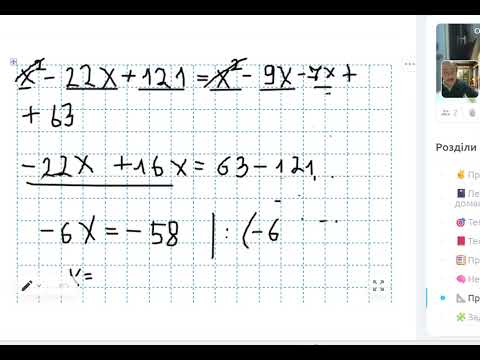 x² - 22x + 121 = x² - 9x - 7x +
+ 63
- 22x + 16x = 63 - 121
- 6x = - 58 | : (-6
x =
Розділи
Пр
Пе
дома
Те
Те
Пр
Не
Пр
Зад